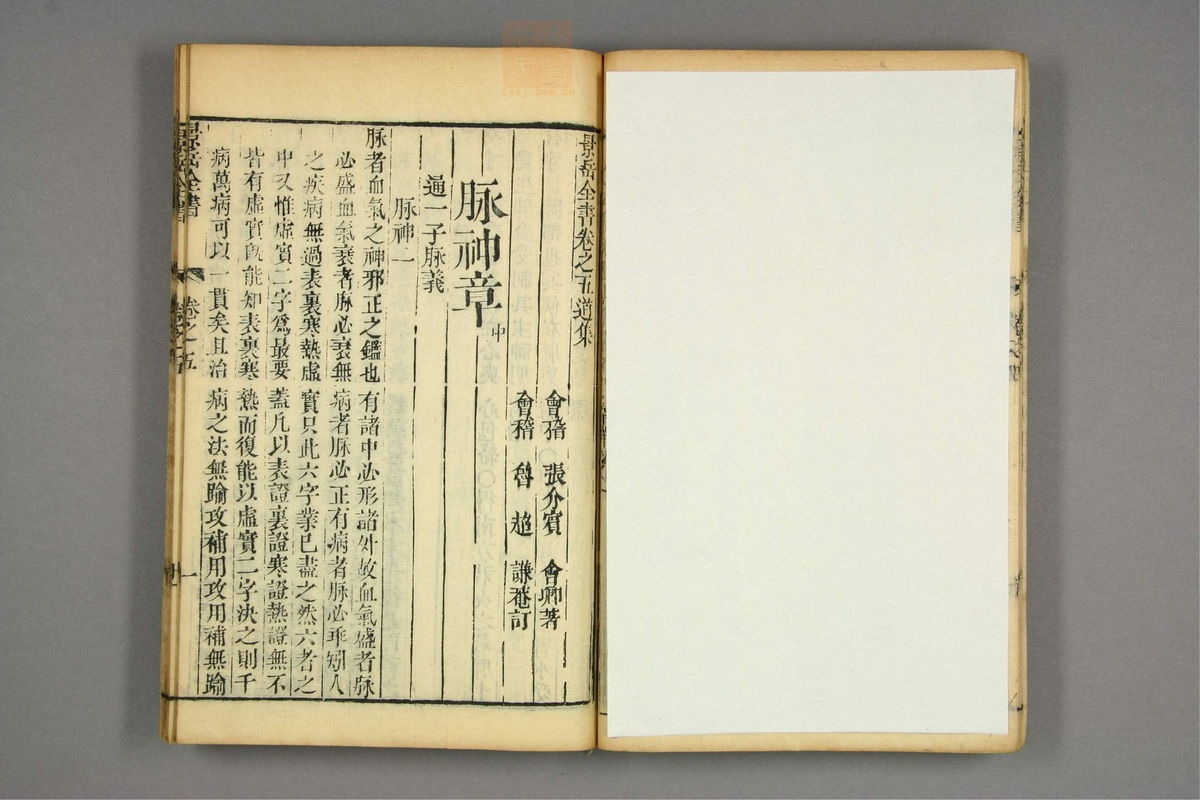 景岳全書卷之五道集
會稽 張介賓 會卿著
會稽 魯超 謙菴訂
脉神章中
通一子脉義
脉神一
脉者血氣之神邪正之鑑也有諸中必形諸外故血氣盛者脉
必盛血氣衰者脉必衰無病者脉必正有病者脉必乖矧人
之疾病無過表裏寒熱虛實只此六字業已盡之然六者之
中又惟虛實二字爲最要蓋凡以表證裏證寒證熱證無不
皆有虛實旣能知表裏寒熱而復能以虛實二字決之則千
病萬病可以一貫矣且治病之法無踰攻補用攻用補無踰
景岳全書
卷之五
一